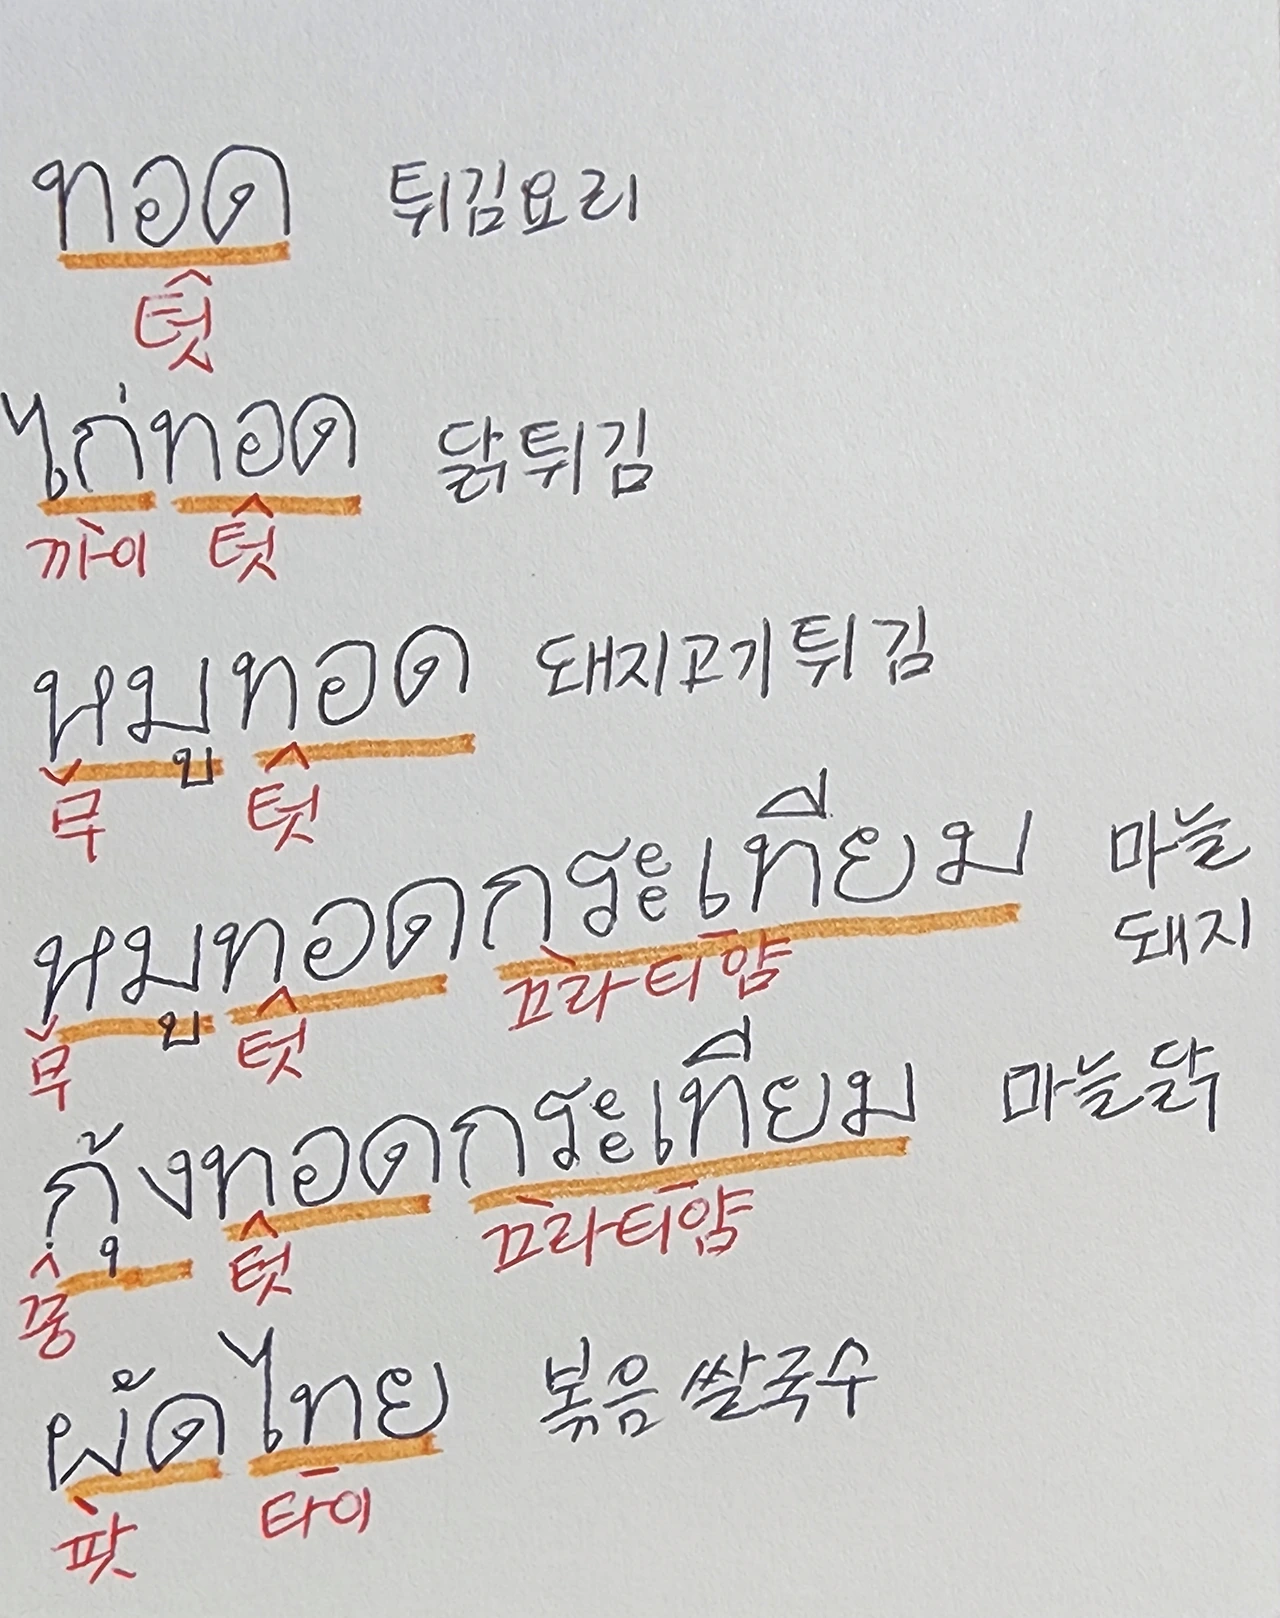 ทอด 튀김요리
텃
ไก่ทอด 닭튀김
까이 텃
หมูทอด 돼지고기튀김
무 텃
หมูทอดกระเทียม 마늘
돼지
무 텃 끄라티얌
กุ้งทอดกระเทียม 마늘닭
꿍 텃 끄라티얌
ผัดไทย 볶음쌀국수
팟 타이